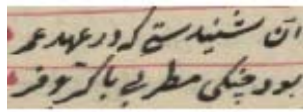 آن شنیدستی که در عهد عمر
بود چنگی مطربی با کر و فر